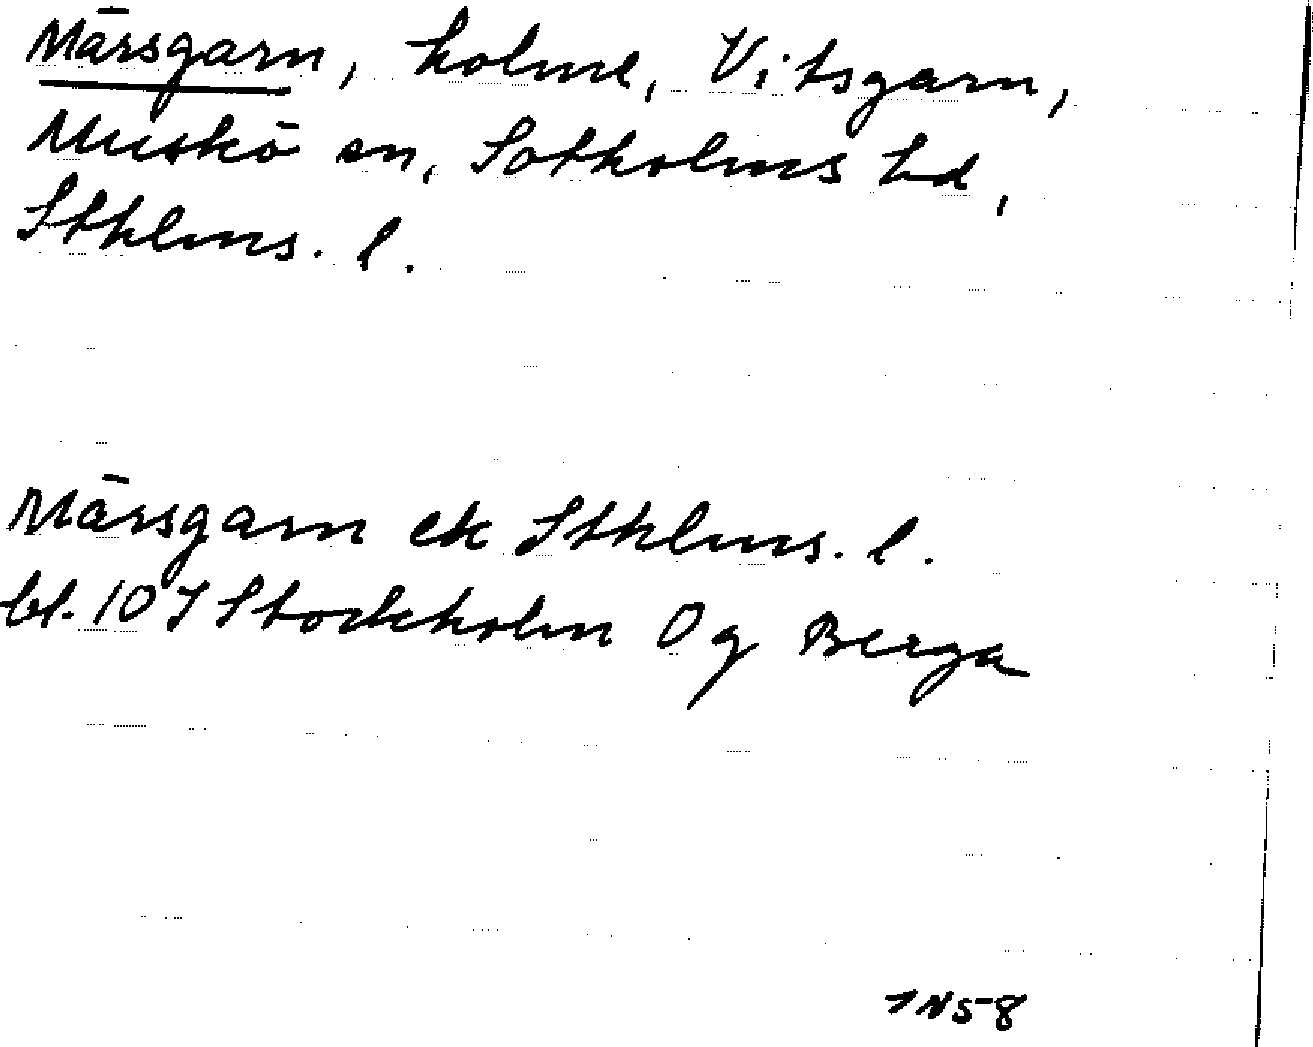 Märsgarn, holme, Vitsgarn,
Muskö sn, Sotholms hd,
Sthlms. l.
Märsgarn ek Sthlms. l.
bl. 10 I Stockholm Og Berga